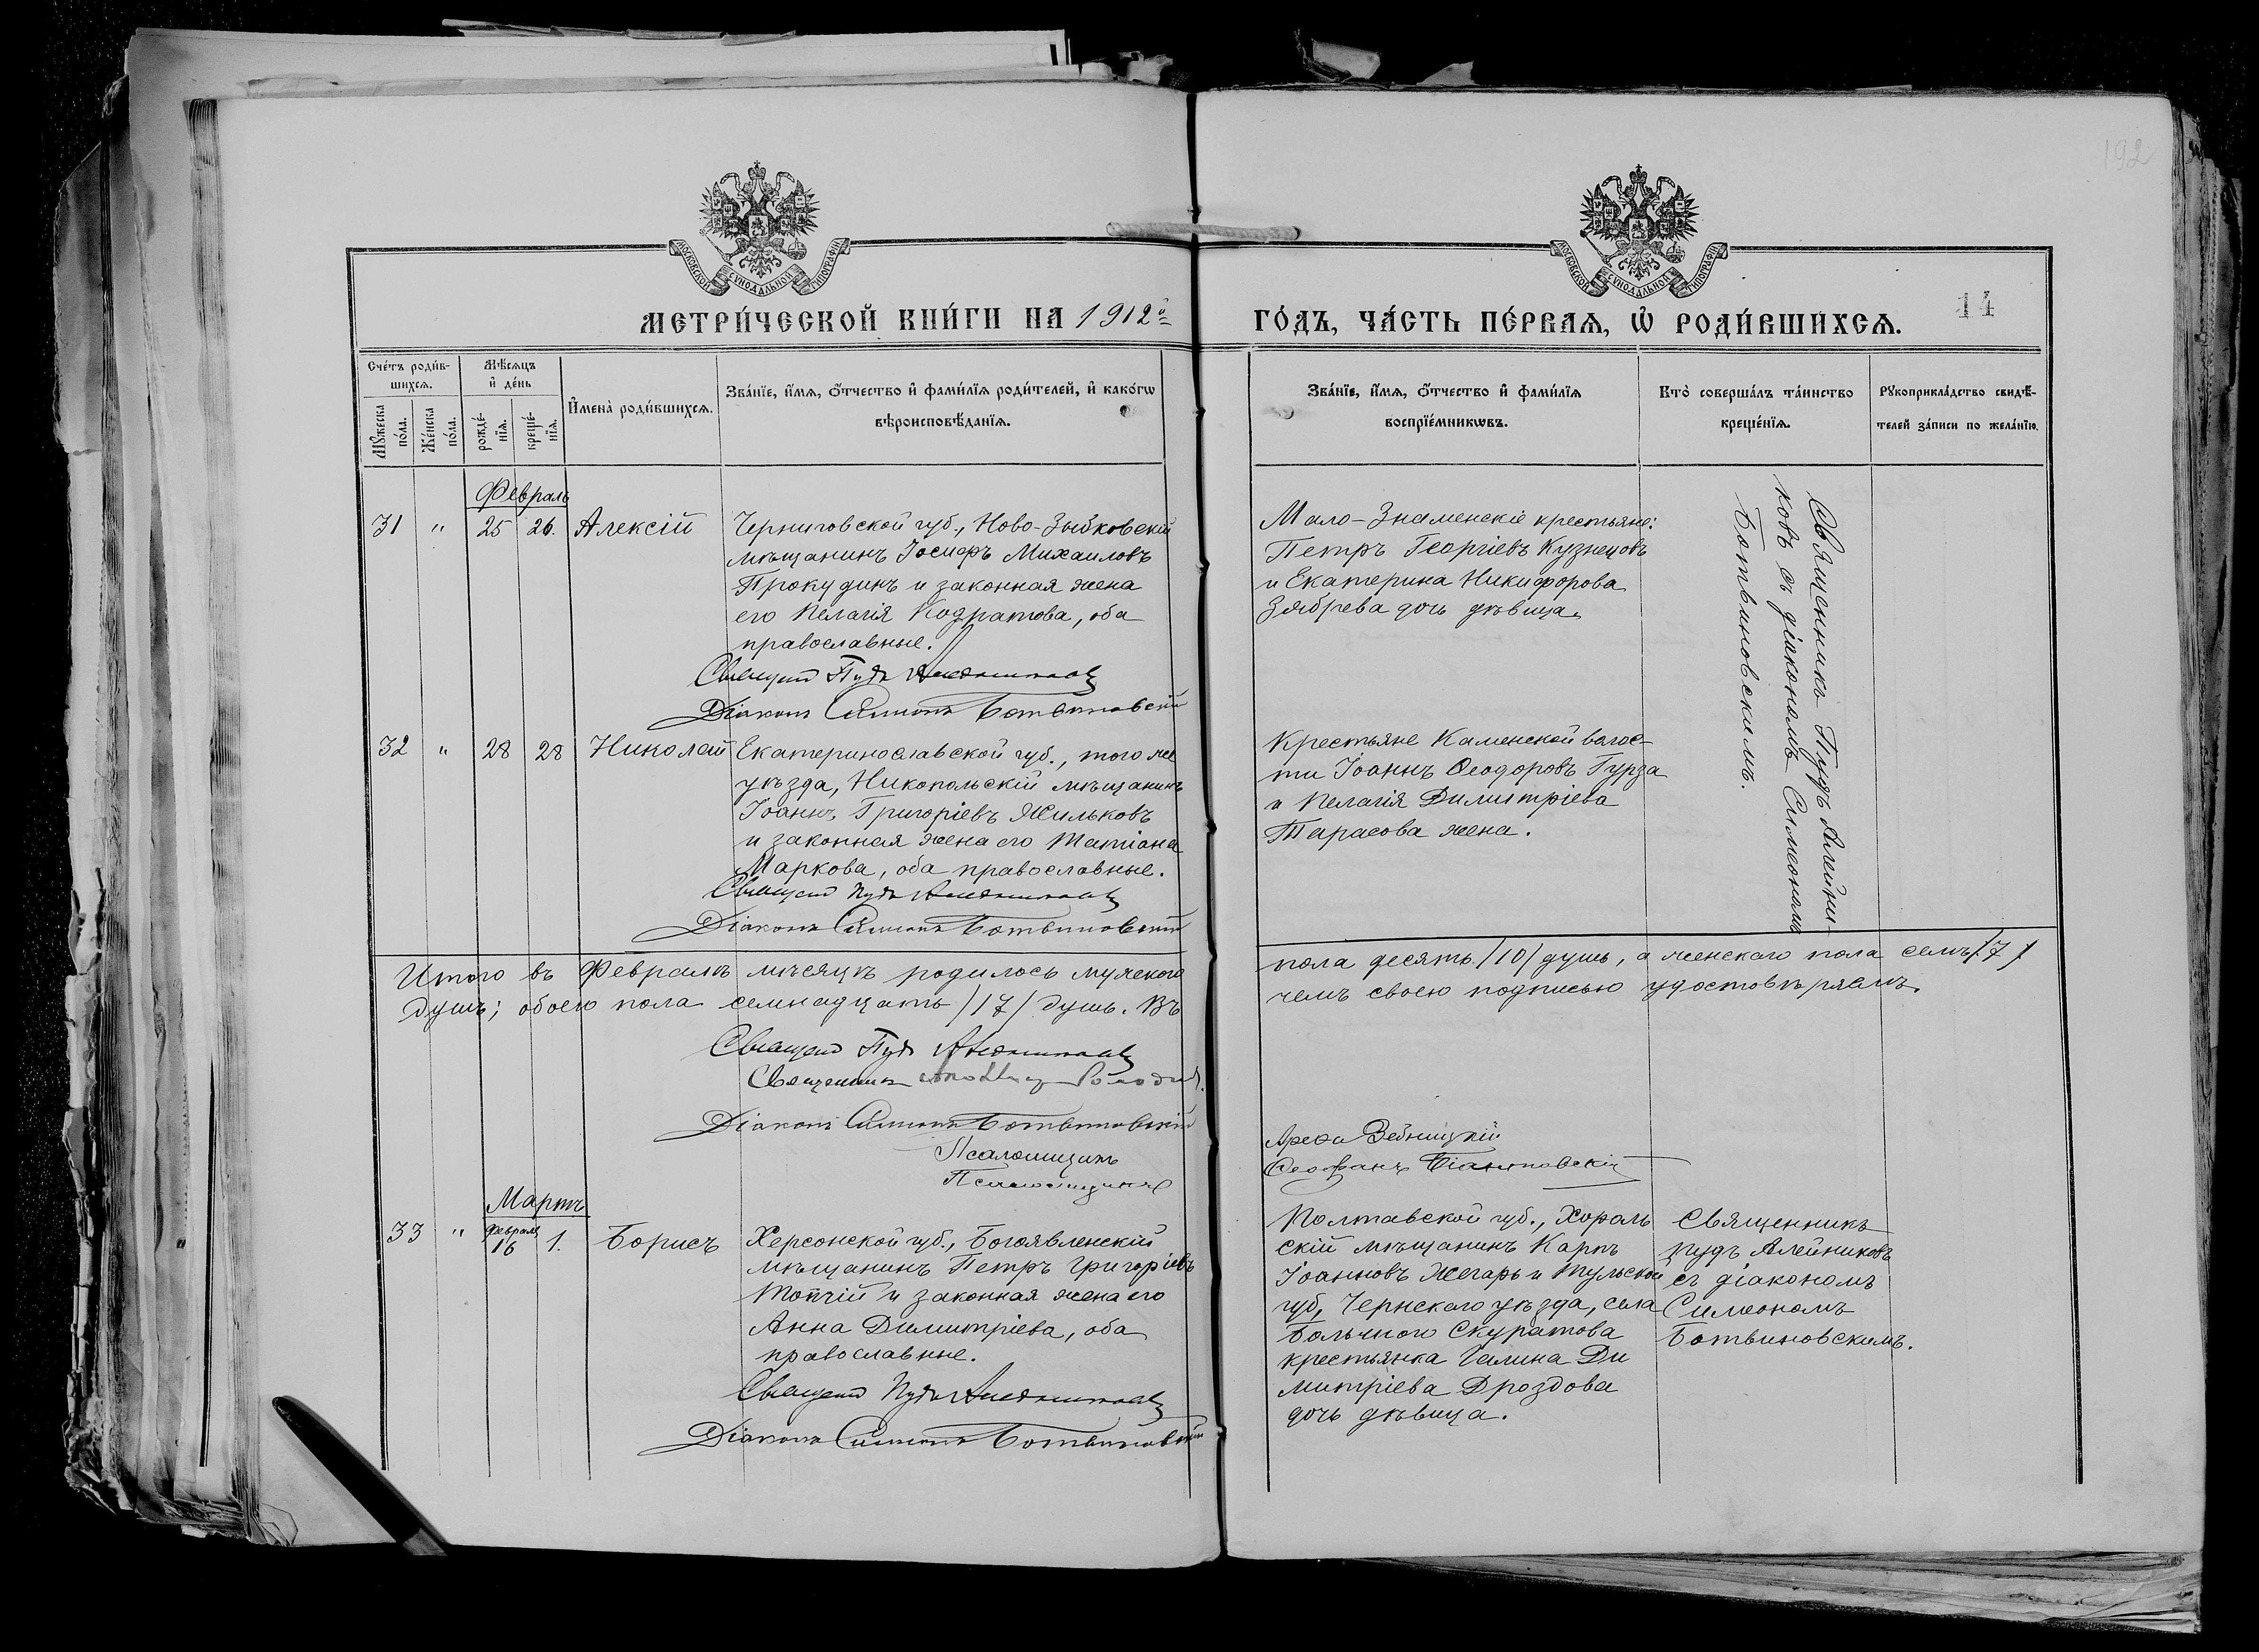 192
МОСКОВСКОЙ СѴНОДАЛЬНОЙ ТИПОГРАФІИ
МОСКОВСКОЙ СѴНОДАЛЬНОЙ ТИПОГРАФІИ
МЕТРИ́ЧЕСКОЙ КНИ́ГИ НА 1912й
ГО́ДЪ, ЧА́СТЬ ПЕ́РВАЯ, Ѡ҆ РОДИ́ВШИХСЯ.
14
Сче́тъ роди́в-
шихся.
Мꙋ́жеска
по́ла.
Же́нска
по́ла.
Мѣ́сяцъ
и҆ де́нь
рожде́-
нїя.
креще́-
нїя.
И҆мена̀ роди́вшихся.
Зва́нїе, и҆́мя, ѻ҆́тчество и҆ фами́лїя роди́телей, и҆ како́гѡ
вѣроисповѣ́данїя.
Зва́нїе, и҆́мя, ѻ҆́тчество и҆ фами́лїя
воспрїе́мникѡвъ.
Кто̀ соверша́лъ та́инство
креще́нїя.
Рꙋкоприкла́дство свидѣ́-
телей за́писи по жела́нїю.
Февраль
31 " 25 26. Алексій
Черниговской губ., Ново-Зыбковскій
мѣщанинъ Іосифъ Михаиловъ
Прокудинъ и законная жена
его Пелагія Кодратова, оба
православные.
Священ Пудъ Алейниковъ
Діаконъ Симеонъ Ботвиновскій
Мало-Знаменскіе крестьяне:
Петръ Георгіевъ Кузнецовъ
и Екатерина Никифорова
Зябрева дочь дѣвица.
Священникъ Пудъ Алейни-
ковъ съ діакономъ Симеономъ
Ботвиновскимъ.
32 " 28 28 Николай
Екатеринославской губ., того же
уѣзда, Никопольскій мѣщанинъ
Іоаннъ Григоріевъ Жильковъ
и законная жена его Татіана
Маркова, оба православные.
Священ Пудъ Алейниковъ
Діаконъ Симеонъ Ботвиновскій
Крестьяне Каменской волос-
ти Іоаннъ Ѳеодоровъ Гурза
и Пелагія Димитріева
Тарасова жена.
Итого въ Февралѣ мѣсяцѣ родилось мужского
пола десять /10/ душъ, а женскаго пола семь /7/
душъ; обоего пола семнадцать /17/ душъ. Въ
чемъ своею подписью удостовѣряемъ.
Священ Пудъ Алейниковъ
Священникъ
Діаконъ Симеонъ Ботвиновскій
Псаломщикъ
Арефа
Псаломщикъ
Ѳеофанъ
Мартъ
33 " Февраля 16 1. Борисъ
Херсонской губ., Богоявленскій
мѣщанинъ Петръ Григоріевъ
Топчій и законная жена его
Анна Димитріева, оба
православные.
Священ Пудъ Алейниковъ
Діаконъ Симеонъ Ботвиновскій
Полтавской губ., Хороль
скій мѣщанинъ Карпъ
Іоанновъ Жегарь и Тульской
губ, Чернскаго уѣзда, села
Большого Скуратова
крестьянка Галина Ди
митріева Дроздова
дочь дѣвица.
Священникъ
Пудъ Алейниковъ
съ діакономъ
Симеономъ
Ботвиновскимъ.